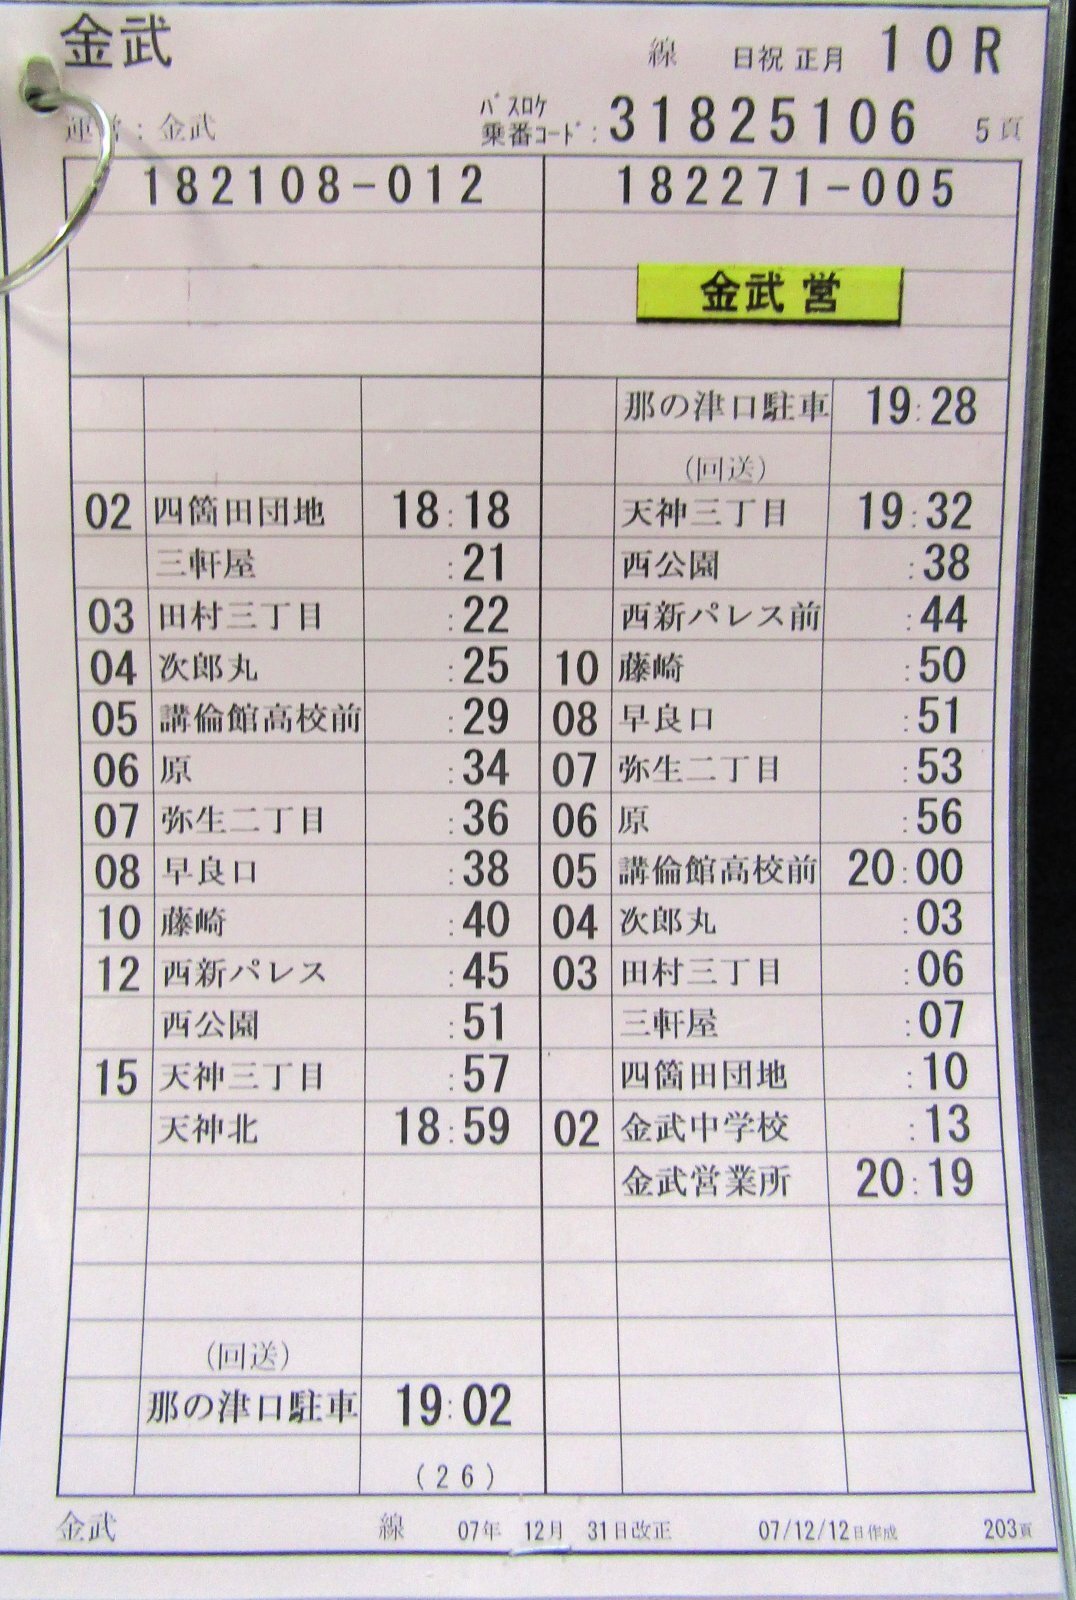 金武 線 日祝 正月 10R
運営：金武 バスロケ 乗番コード：31825106 5頁
182108-012 182271-005
金武 営
那の津口駐車 19:28
(回送)
02 四箇田団地 18:18 天神三丁目 19:32
三軒屋 :21 西公園 :38
03 田村三丁目 :22 西新パレス前 :44
04 次郎丸 :25 10 藤崎 :50
05 講倫館高校前 :29 08 早良口 :51
06 原 :34 07 弥生二丁目 :53
07 弥生二丁目 :36 06 原 :56
08 早良口 :38 05 講倫館高校前 20:00
10 藤崎 :40 04 次郎丸 :03
12 西新パレス :45 03 田村三丁目 :06
西公園 :51 三軒屋 :07
15 天神三丁目 :57 四箇田団地 :10
天神北 18:59 02 金武中学校 :13
金武営業所 20:19
(回送)
那の津口駐車 19:02
(26)
金武 線 07年 12月 31日改正 07/12/12日作成 203頁